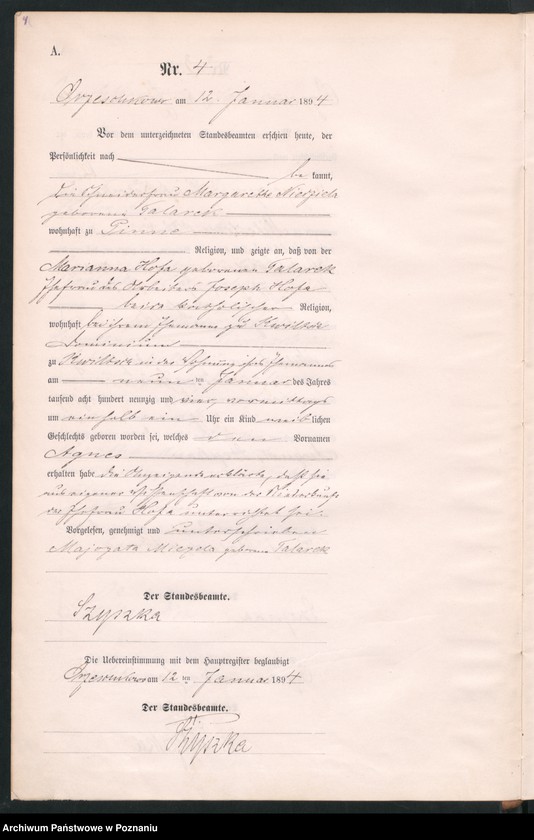 A.
Nr. 4
Orzeschkowo am 12. Januar 1894
Vor dem unterzeichneten Standesbeamten erschien heute, der
Persönlichkeit nach
be kannt,
die Schneiderfrau Margarethe
geborene Talarek
wohnhaft zu Pinne
Religion, und zeigte an, daß von der
Marianna Hofa geborenen Talarek
Ehefrau des Arbeiters Joseph Hofa
beide katholischer Religion,
wohnhaft bei ihrem Ehemann zu Kwiltsch
Dominium
zu Kwiltsch in der Wohnung ihres Ehemannes
am neunten Januar des Jahres
tausend acht hundert neunzig und vier, vormittags
um ein halb ein Uhr ein Kind weiblichen
Geschlechts geboren worden sei, welches den Vornamen
Agnes
erhalten habe die Anzeigende erklärte, daß sie
aus eigener Wissenschaft von der Niederkunft
der Ehefrau Hofa unterrichtet sei.
Vorgelesen, genehmigt und unterschrieben
geborene Talarek
Der Standesbeamte.
Szyszka
Die Uebereinstimmung mit dem Hauptregister beglaubigt
am 12ten Januar 1894
Der Standesbeamte.
Szyszka
Archiwum Państwowe w Poznaniu